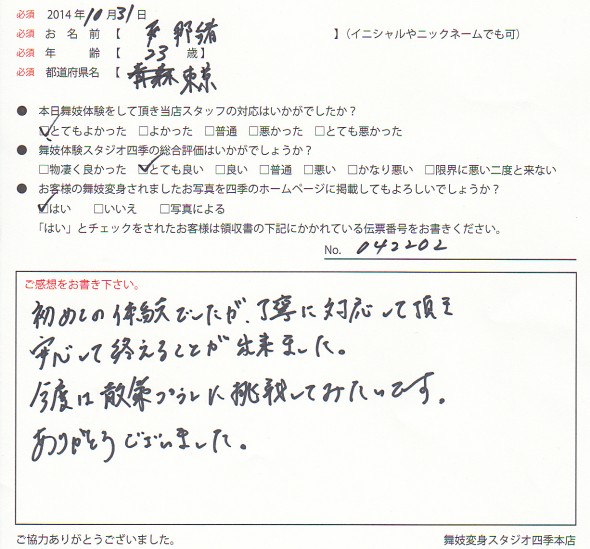 必須 2014年10月31日
必須 お名前【 那緒 】(イニシャルやニックネームでも可)
必須 年齢【 23 歳】
必須 都道府県名【 東京
● 本日舞妓体験をして頂き当店スタッフの対応はいかがでしたか?
☑とてもよかった □よかった □普通 □悪かった □とても悪かった
● 舞妓体験スタジオ四季の総合評価はいかがでしょうか?
□物凄く良かった ☑とても良い □良い □普通 □悪い □かなり悪い □限界に悪い二度と来ない
● お客様の舞妓変身されましたお写真を四季のホームページに掲載してもよろしいでしょうか?
☑はい □いいえ □写真による
「はい」とチェックをされたお客様は領収書の下記にかかれている伝票番号をお書きください。
No. 042202
ご感想をお書き下さい。
初めての体験でしたが、丁寧に対応して頂き
安心して終えることが出来ました。
今度は散策プランに挑戦してみたいです。
ありがとうございました。
ご協力ありがとうございました。 舞妓変身スタジオ四季本店